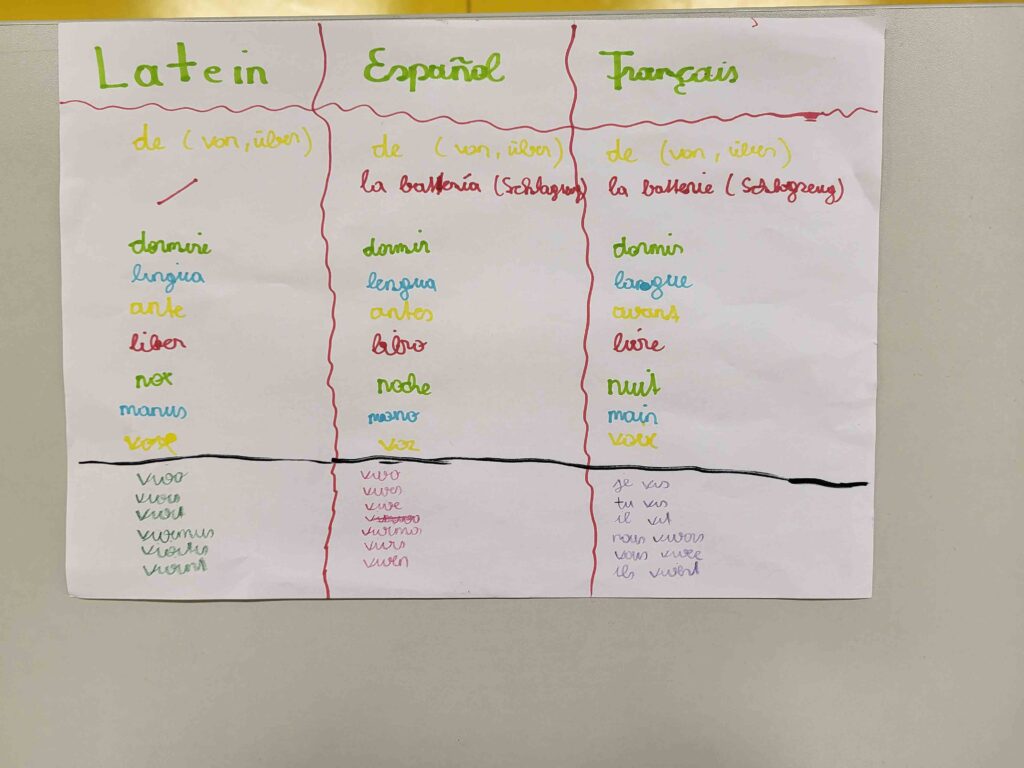 Latein Español Français
de (von, über) de (von, über) de (von, über)
la batería (Schlagzeug) la batterie (Schlagzeug)
dormire dormir dormir
lingua lengua langue
ante antes avant
liber libro livre
nox noche nuit
manus mano main
voz
vivo vivo je vis
vives tu vis
vivit vive il vit
nous vivons
vivunt viven ils vivent